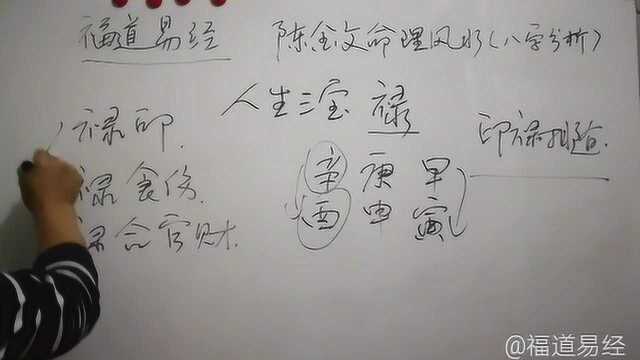 福道易经 陈金文命理风水(八字分析)
人生三宝 禄
禄印.
禄食伤.
禄合官财.
辛 庚 甲
酉 申 寅
印禄相随.
@福道易经